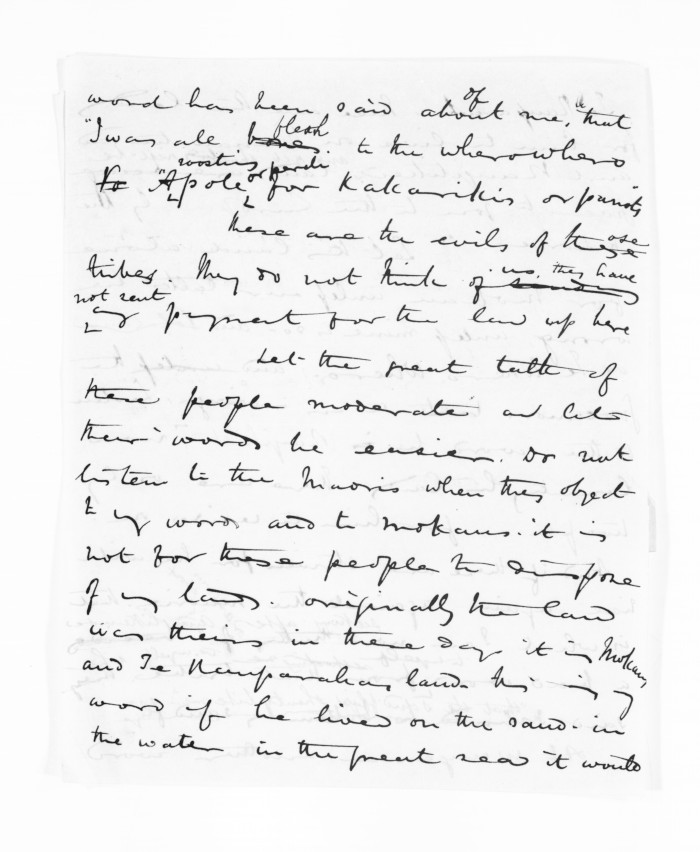 of
word has been said about me. "that
flesh
"I was all bones. to the wherowhero
roosting or perch
To "A pole" for Kakarikis or parrots
these are the evils of these ose
us. they have
tribes. They do not think of sending
not sent
any payment for the land up here
Let the great talk of
these people moderate and let
their words be easier. Do not
listen to the Maoris when they object
to my words and to Mokaus. it is
not for these people to dispose
of my land. originally the land
was theirs in these day it is Mokaus
and Te Rauparahas land. this is my
word if he lived on the sand. in
the water in the great sea it would